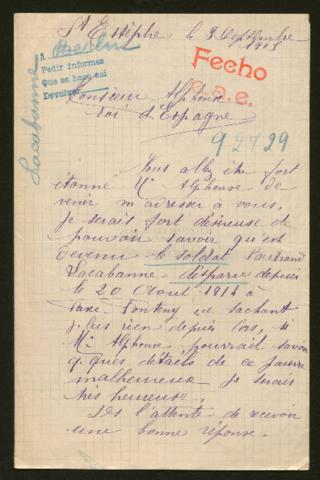 St Estèphe le 3 Septembre
1915
A Berlin
Pedir informes
Que se haga así
Devolver
Lacabanne
Fecho
Monsieur Alphonse
roi d'Espagne
92729
Vous allez être fort
étonné Mr Alphonse de
venir m'adresser à vous,
je serais fort désireuse de
pouvoir savoir qu'est
devenu le soldat Bertrand
Lacabanne disparu depuis
le 20 Aout 1914 à
Fonteny ne sachant
plus rien depuis lors, si
Mr Alphonse pourrait savoir
q.ques détails de ce pauvre
malheureux je serais
très heureuse.
Dès l'attente de recevoir
une bonne réponse.